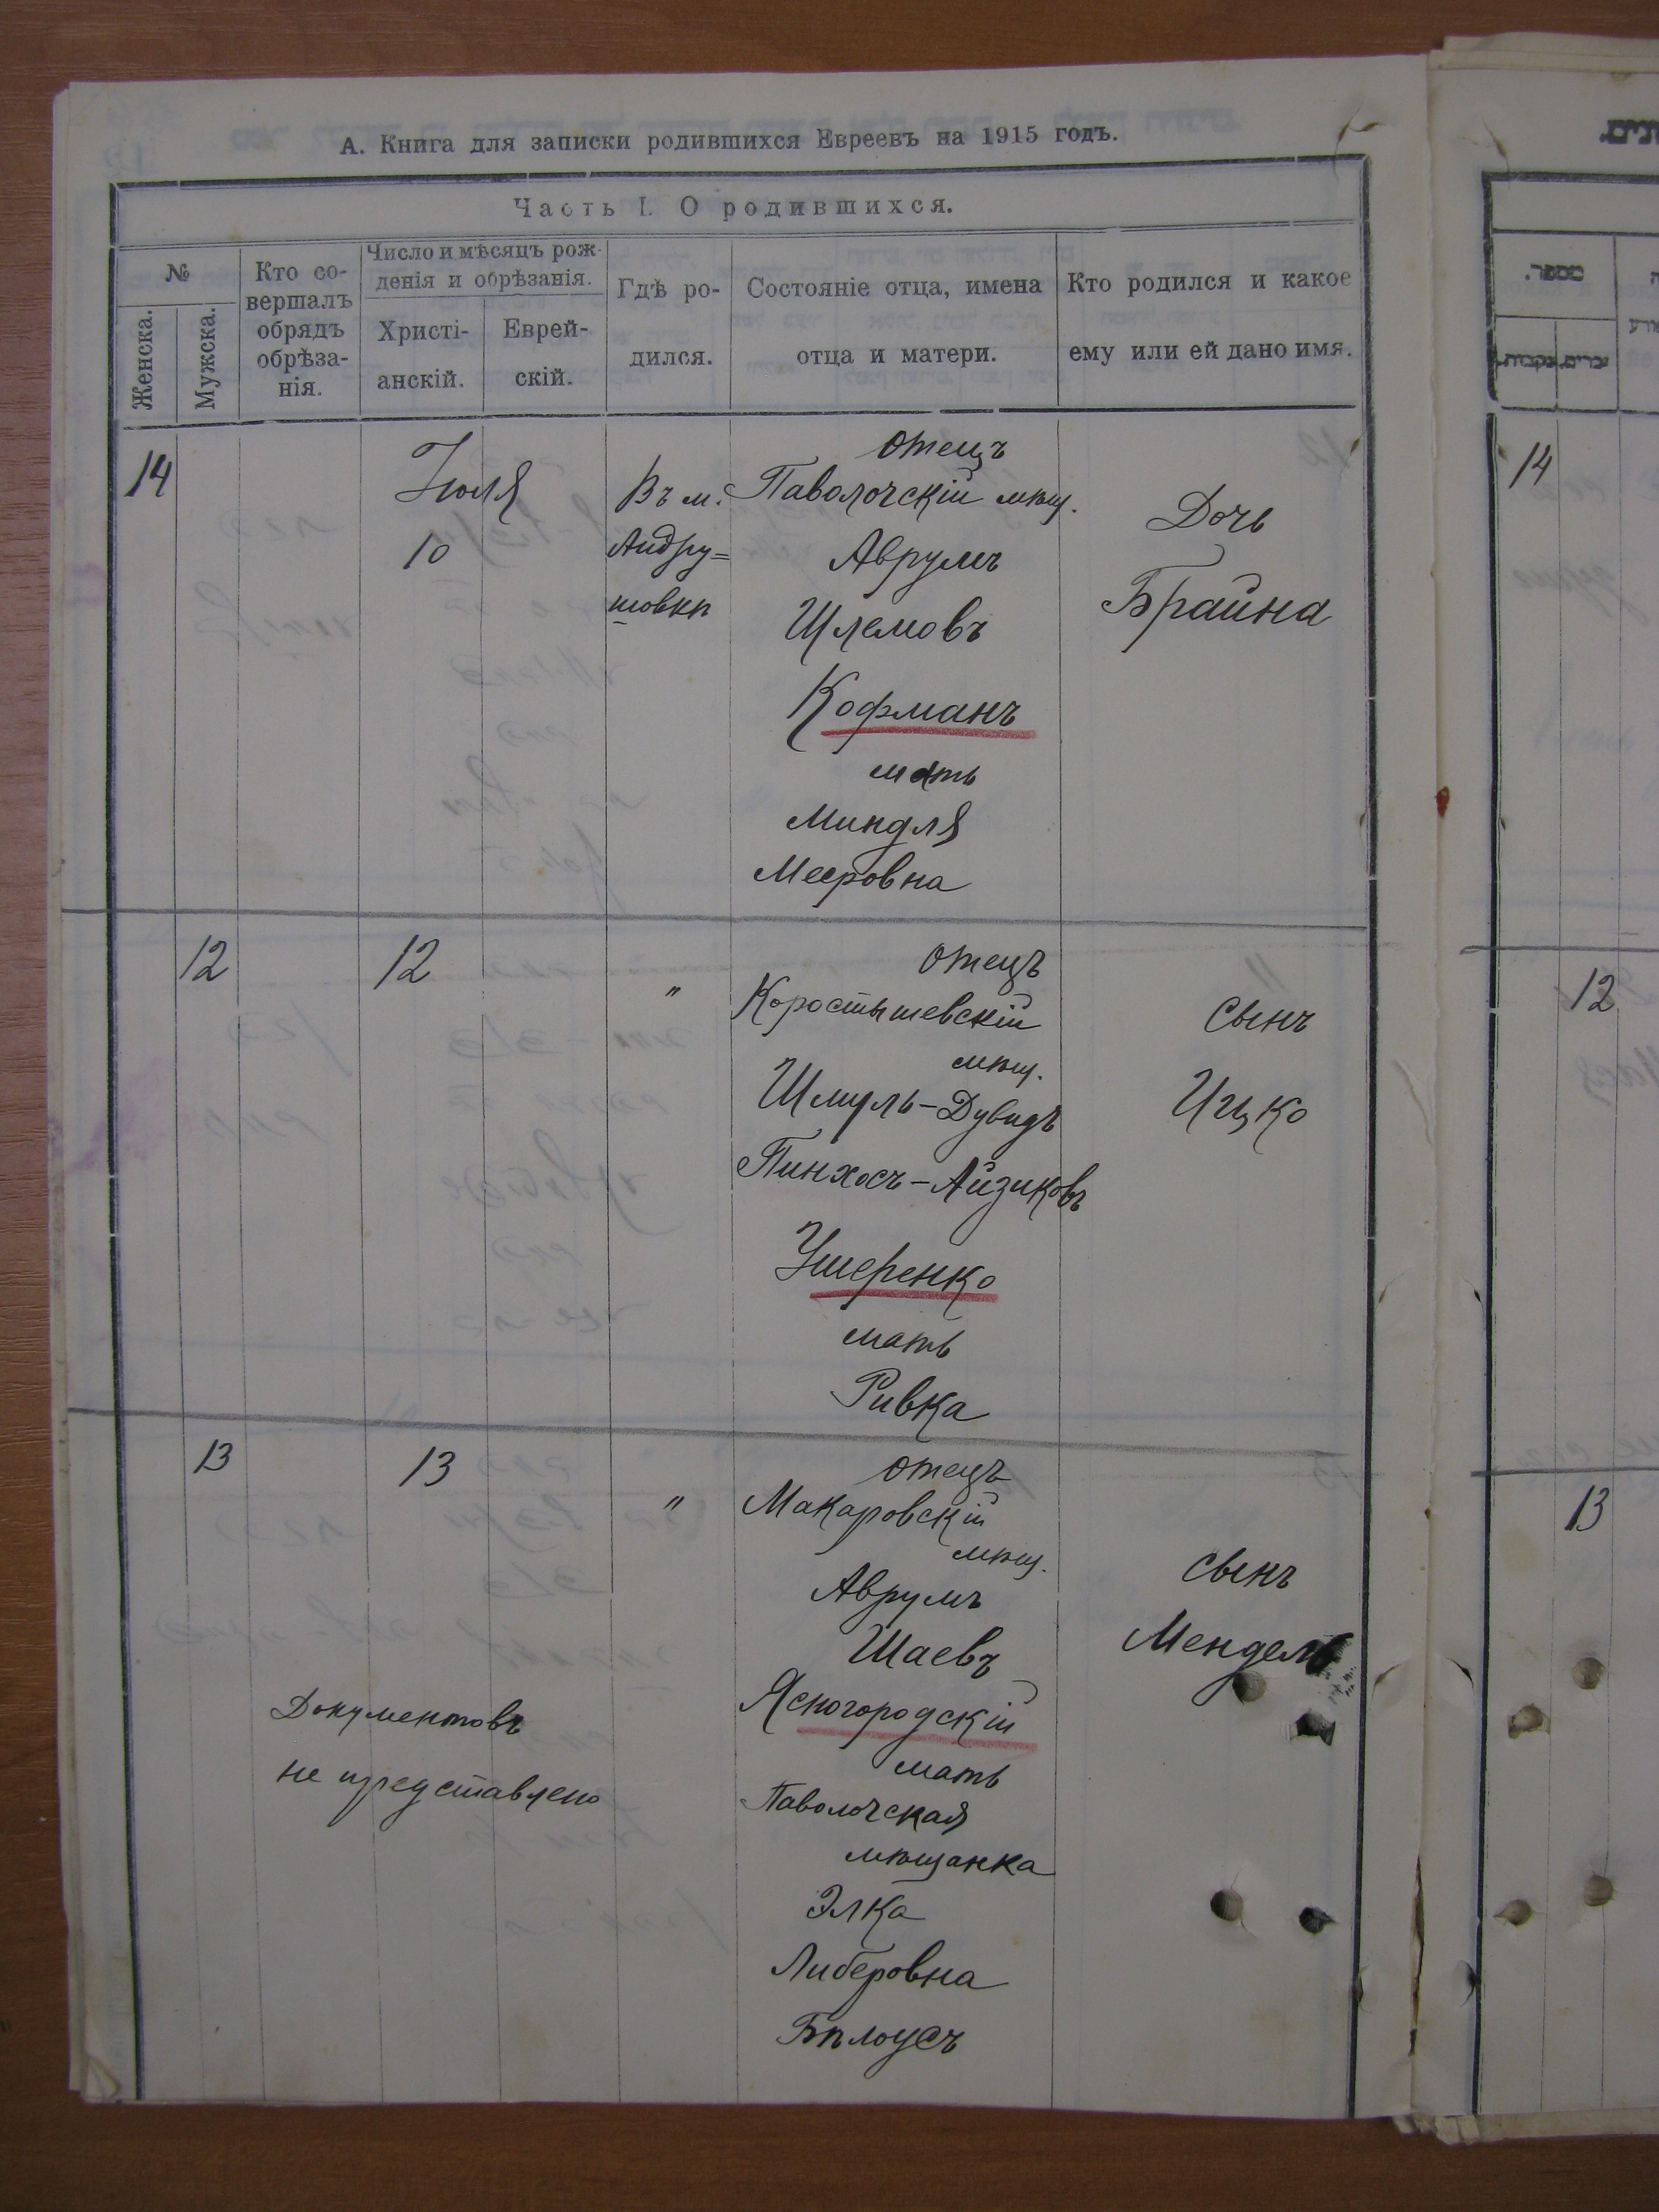 А. Книга для записки родившихся Евреевъ на 1915 годъ.
Часть I. О родившихся.
№
Женска.
Мужска.
Кто со-
вершалъ
обрядъ
обрѣза-
нія.
Число и мѣсяцъ рож-
денія и обрѣзанія.
Христі-
анскій.
Еврей-
скій.
Гдѣ ро-
дился.
Состояніе отца, имена
отца и матери.
Кто родился и какое
ему или ей дано имя.
14
Іюля
10
Въ м.
Андру=
шовкѣ
отецъ
Паволочскій мѣщ.
Аврумъ
Шлемовъ
Кофманъ
мать
Миндля
Мееровна
Дочь
Брайна
12
12
"
отецъ
Коростышевскій
мѣщ.
Шмуль-Дувидъ
Пинхосъ-Айзиковъ
Ушеренко
мать
Ривка
сынъ
Ицко
13
13
"
Документовъ
не представлено
отецъ
Макаровскій
мѣщ.
Аврумъ
Шаевъ
Ясногородскій
мать
Паволочская
мѣщанка
Элка
Либеровна
Бѣлоусъ
сынъ
Мендель
מספר.
זכרים.
נקבות.
14
12
13